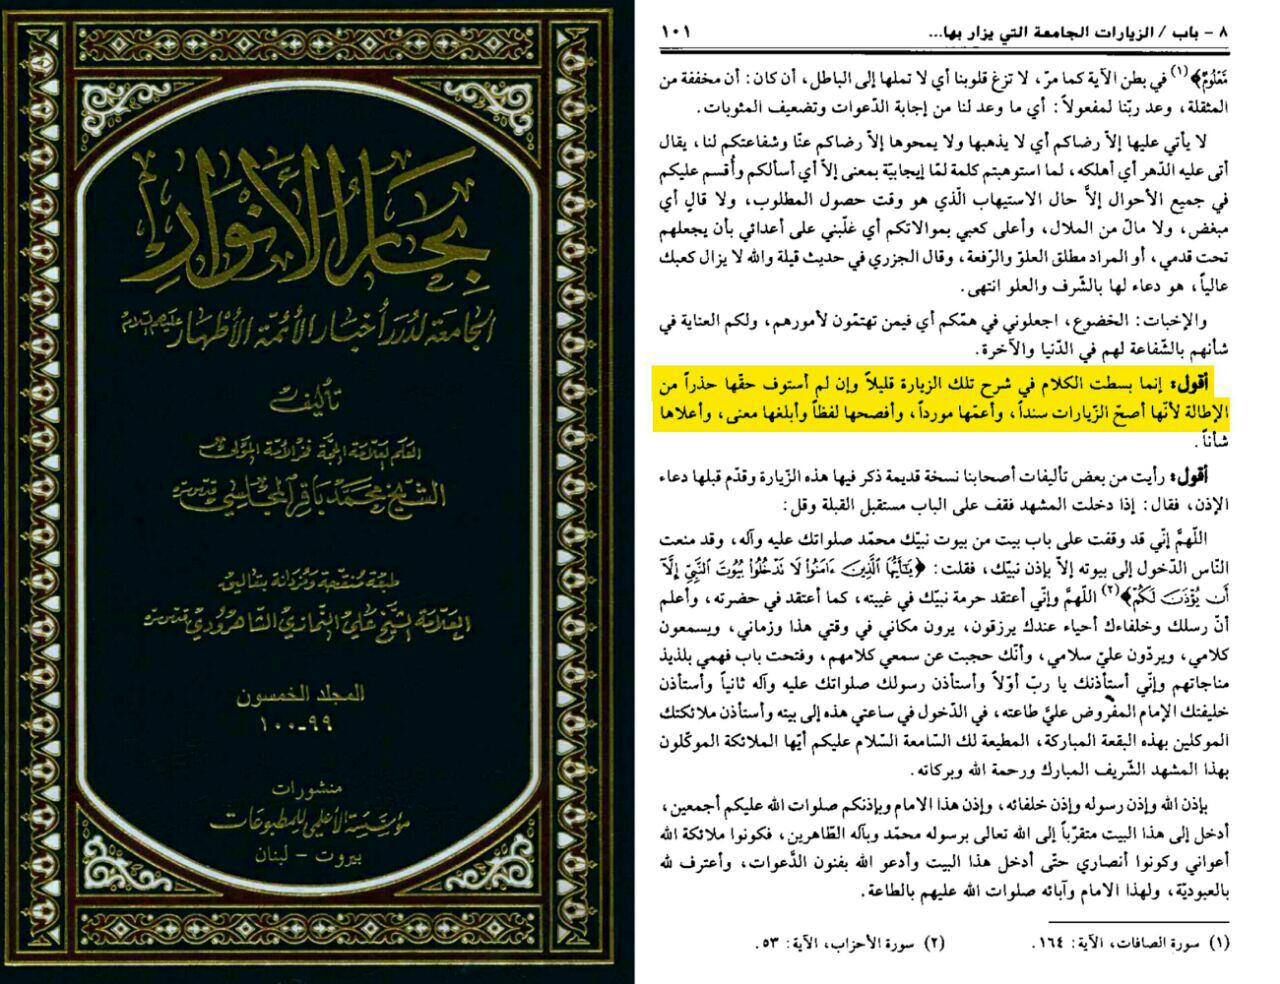 بحار الأنوار
الجامعة لدرر أخبار الأئمة الأطهار عليهم السلام
تأليف
العلم العلامة الحجة فخر الأمة المولى
الشيخ محمد باقر المجلسي قدس سره
طبعة منقحة ومزدانة بتعاليق
العلامة الشيخ علي النمازي الشاهرودي قدس سره
المجلد الخمسون
٩٩-١٠٠
منشورات
مؤسسة الأعلمي للمطبوعات
بيروت - لبنان
٨ - باب / الزيارات الجامعة التي يزار بها... ١٠١
مَّعْلُومٌ﴾(١) في بطن الآية كما مرّ، لا تزغ قلوبنا أي لا تملها إلى الباطل، أن كان: أن مخففة من
المثقلة، وعد ربّنا لمفعولاً: أي ما وعد لنا من إجابة الدّعوات وتضعيف المثوبات.
لا يأتي عليها إلاّ رضاكم أي لا يذهبها ولا يمحوها إلاّ رضاكم عنّا وشفاعتكم لنا، يقال
أتى عليه الدّهر أي أهلكه، لما استوهبتم كلمة لمّا إيجابيّة بمعنى إلاّ أي أسألكم وأُقسم عليكم
في جميع الأحوال إلاَّ حال الاستيهاب الّذي هو وقت حصول المطلوب، ولا قالٍ أي
مبغض، ولا مالّ من الملال، وأعلى كعبي بموالاتكم أي غلّبني على أعدائي بأن يجعلهم
تحت قدمي، أو المراد مطلق العلوّ والرّفعة، وقال الجزري في حديث قيلة والله لا يزال كعبك
عالياً، هو دعاء لها بالشّرف والعلو انتهى.
والإخبات: الخضوع، اجعلوني في همّكم أي فيمن تهتمّون لأمورهم، ولكم العناية في
شأنهم بالشّفاعة لهم في الدّنيا والآخرة.
أقول: إنما بسطت الكلام في شرح تلك الزيارة قليلاً وإن لم أستوف حقّها حذراً من
الإطالة لأنّها أصحّ الزّيارات سنداً، وأعمّها مورداً، وأفصحها لفظاً وأبلغها معنى، وأعلاها
شأناً.
أقول: رأيت من بعض تأليفات أصحابنا نسخة قديمة ذكر فيها هذه الزّيارة وقدّم قبلها دعاء
الإذن، فقال: إذا دخلت المشهد فقف على الباب مستقبل القبلة وقل:
اللّهمَّ إنّي قد وقفت على باب بيت من بيوت نبيّك محمّد صلواتك عليه وآله، وقد منعت
النّاس الدّخول إلى بيوته إلاّ بإذن نبيّك، فقلت: ﴿يَٰٓأَيُّهَا ٱلَّذِينَ ءَامَنُواْ لَا تَدْخُلُواْ بُيُوتَ ٱلنَّبِيِّ إِلَّآ
أَن يُؤْذَنَ لَكُمْ﴾(٢) اللّهمَّ وإنّي أعتقد حرمة نبيّك في غيبته، كما أعتقد في حضرته، وأعلم
أنّ رسلك وخلفاءك أحياء عندك يرزقون، يرون مكاني في وقتي هذا وزماني، ويسمعون
كلامي، ويردّون عليّ سلامي، وأنّك حجبت عن سمعي كلامهم، وفتحت باب فهمي بلذيذ
مناجاتهم وإنّي أستأذنك يا ربّ أوّلاً وأستأذن رسولك صلواتك عليه وآله ثانياً وأستأذن
خليفتك الإمام المفروض عليَّ طاعته، في الدّخول في ساعتي هذه إلى بيته وأستأذن ملائكتك
الموكلين بهذه البقعة المباركة، المطيعة لك السّامعة السّلام عليكم أيّها الملائكة الموكّلون
بهذا المشهد الشّريف المبارك ورحمة الله وبركاته.
بإذن الله وإذن رسوله وإذن خلفائه، وإذن هذا الامام وبإذنكم صلوات الله عليكم أجمعين،
أدخل إلى هذا البيت متقرّباً إلى الله تعالى برسوله محمّد وبآله الطّاهرين، فكونوا ملائكة الله
أعواني وكونوا أنصاري حتّى أدخل هذا البيت وأدعو الله بفنون الدَّعوات، وأعترف لله
بالعبوديّة، ولهذا الامام وآبائه صلوات الله عليهم بالطاعة.
(١) سورة الصافات، الآية: ١٦٤. (٢) سورة الأحزاب، الآية: ٥٣.